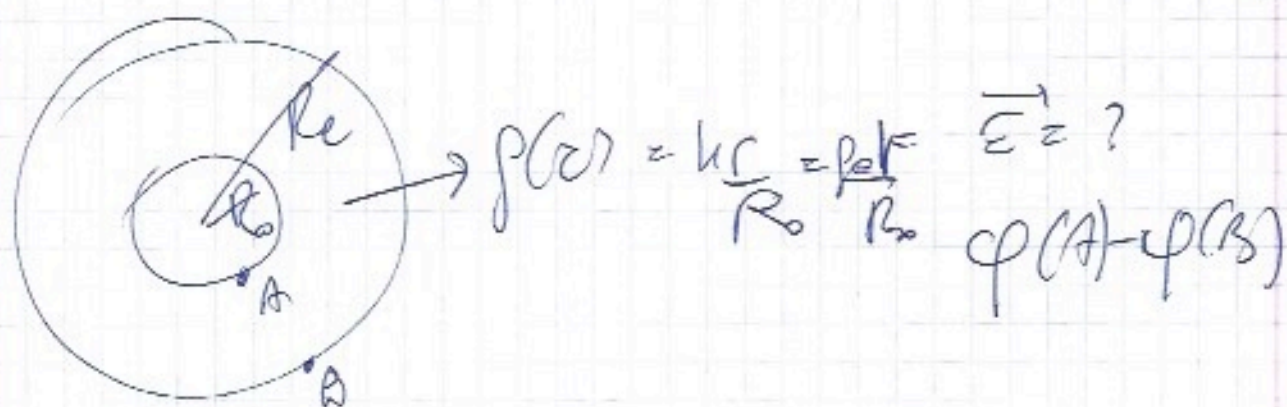 Re
R₀
A
B
ρ(r) = kr/R₀ = ρ₀r/R₀
E⃗ = ?
φ(A) - φ(B)